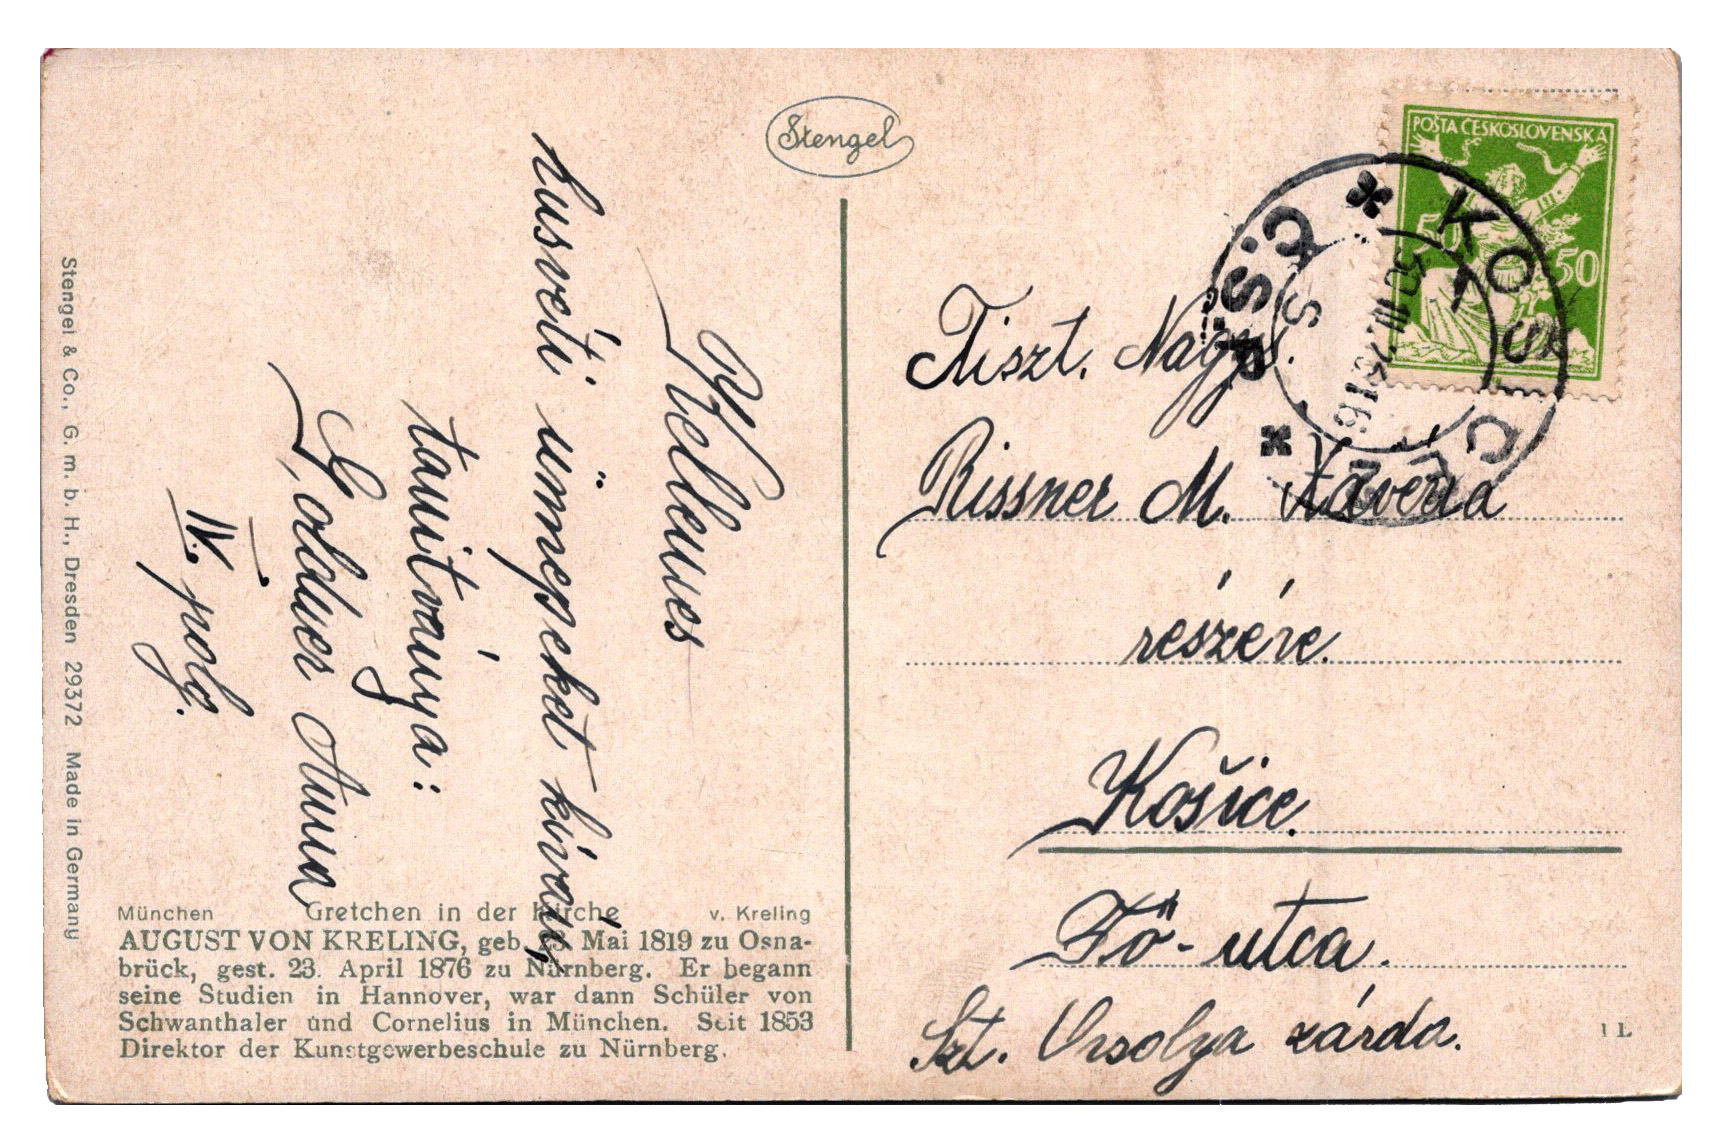 Stengel
Kellemes
husveti ünnepeket kiván,
tanitványa:
Goldner Anna
IV. polg.
POŠTA ČESKOSLOVENSKÁ
50 50
KOŠICE
Č.S.P.
Tiszt. Nagys.
Rissner M. Xaveria
részére.
Košice.
Fő-utca.
Szt. Orsolya zárda.
München Gretchen in der Kirche v. Kreling
AUGUST VON KRELING, geb. 23. Mai 1819 zu Osna-
brück, gest. 23. April 1876 zu Nürnberg. Er begann
seine Studien in Hannover, war dann Schüler von
Schwanthaler und Cornelius in München. Seit 1853
Direktor der Kunstgewerbeschule zu Nürnberg.
Stengel & Co., G. m. b. H., Dresden 29372 Made in Germany
1 L